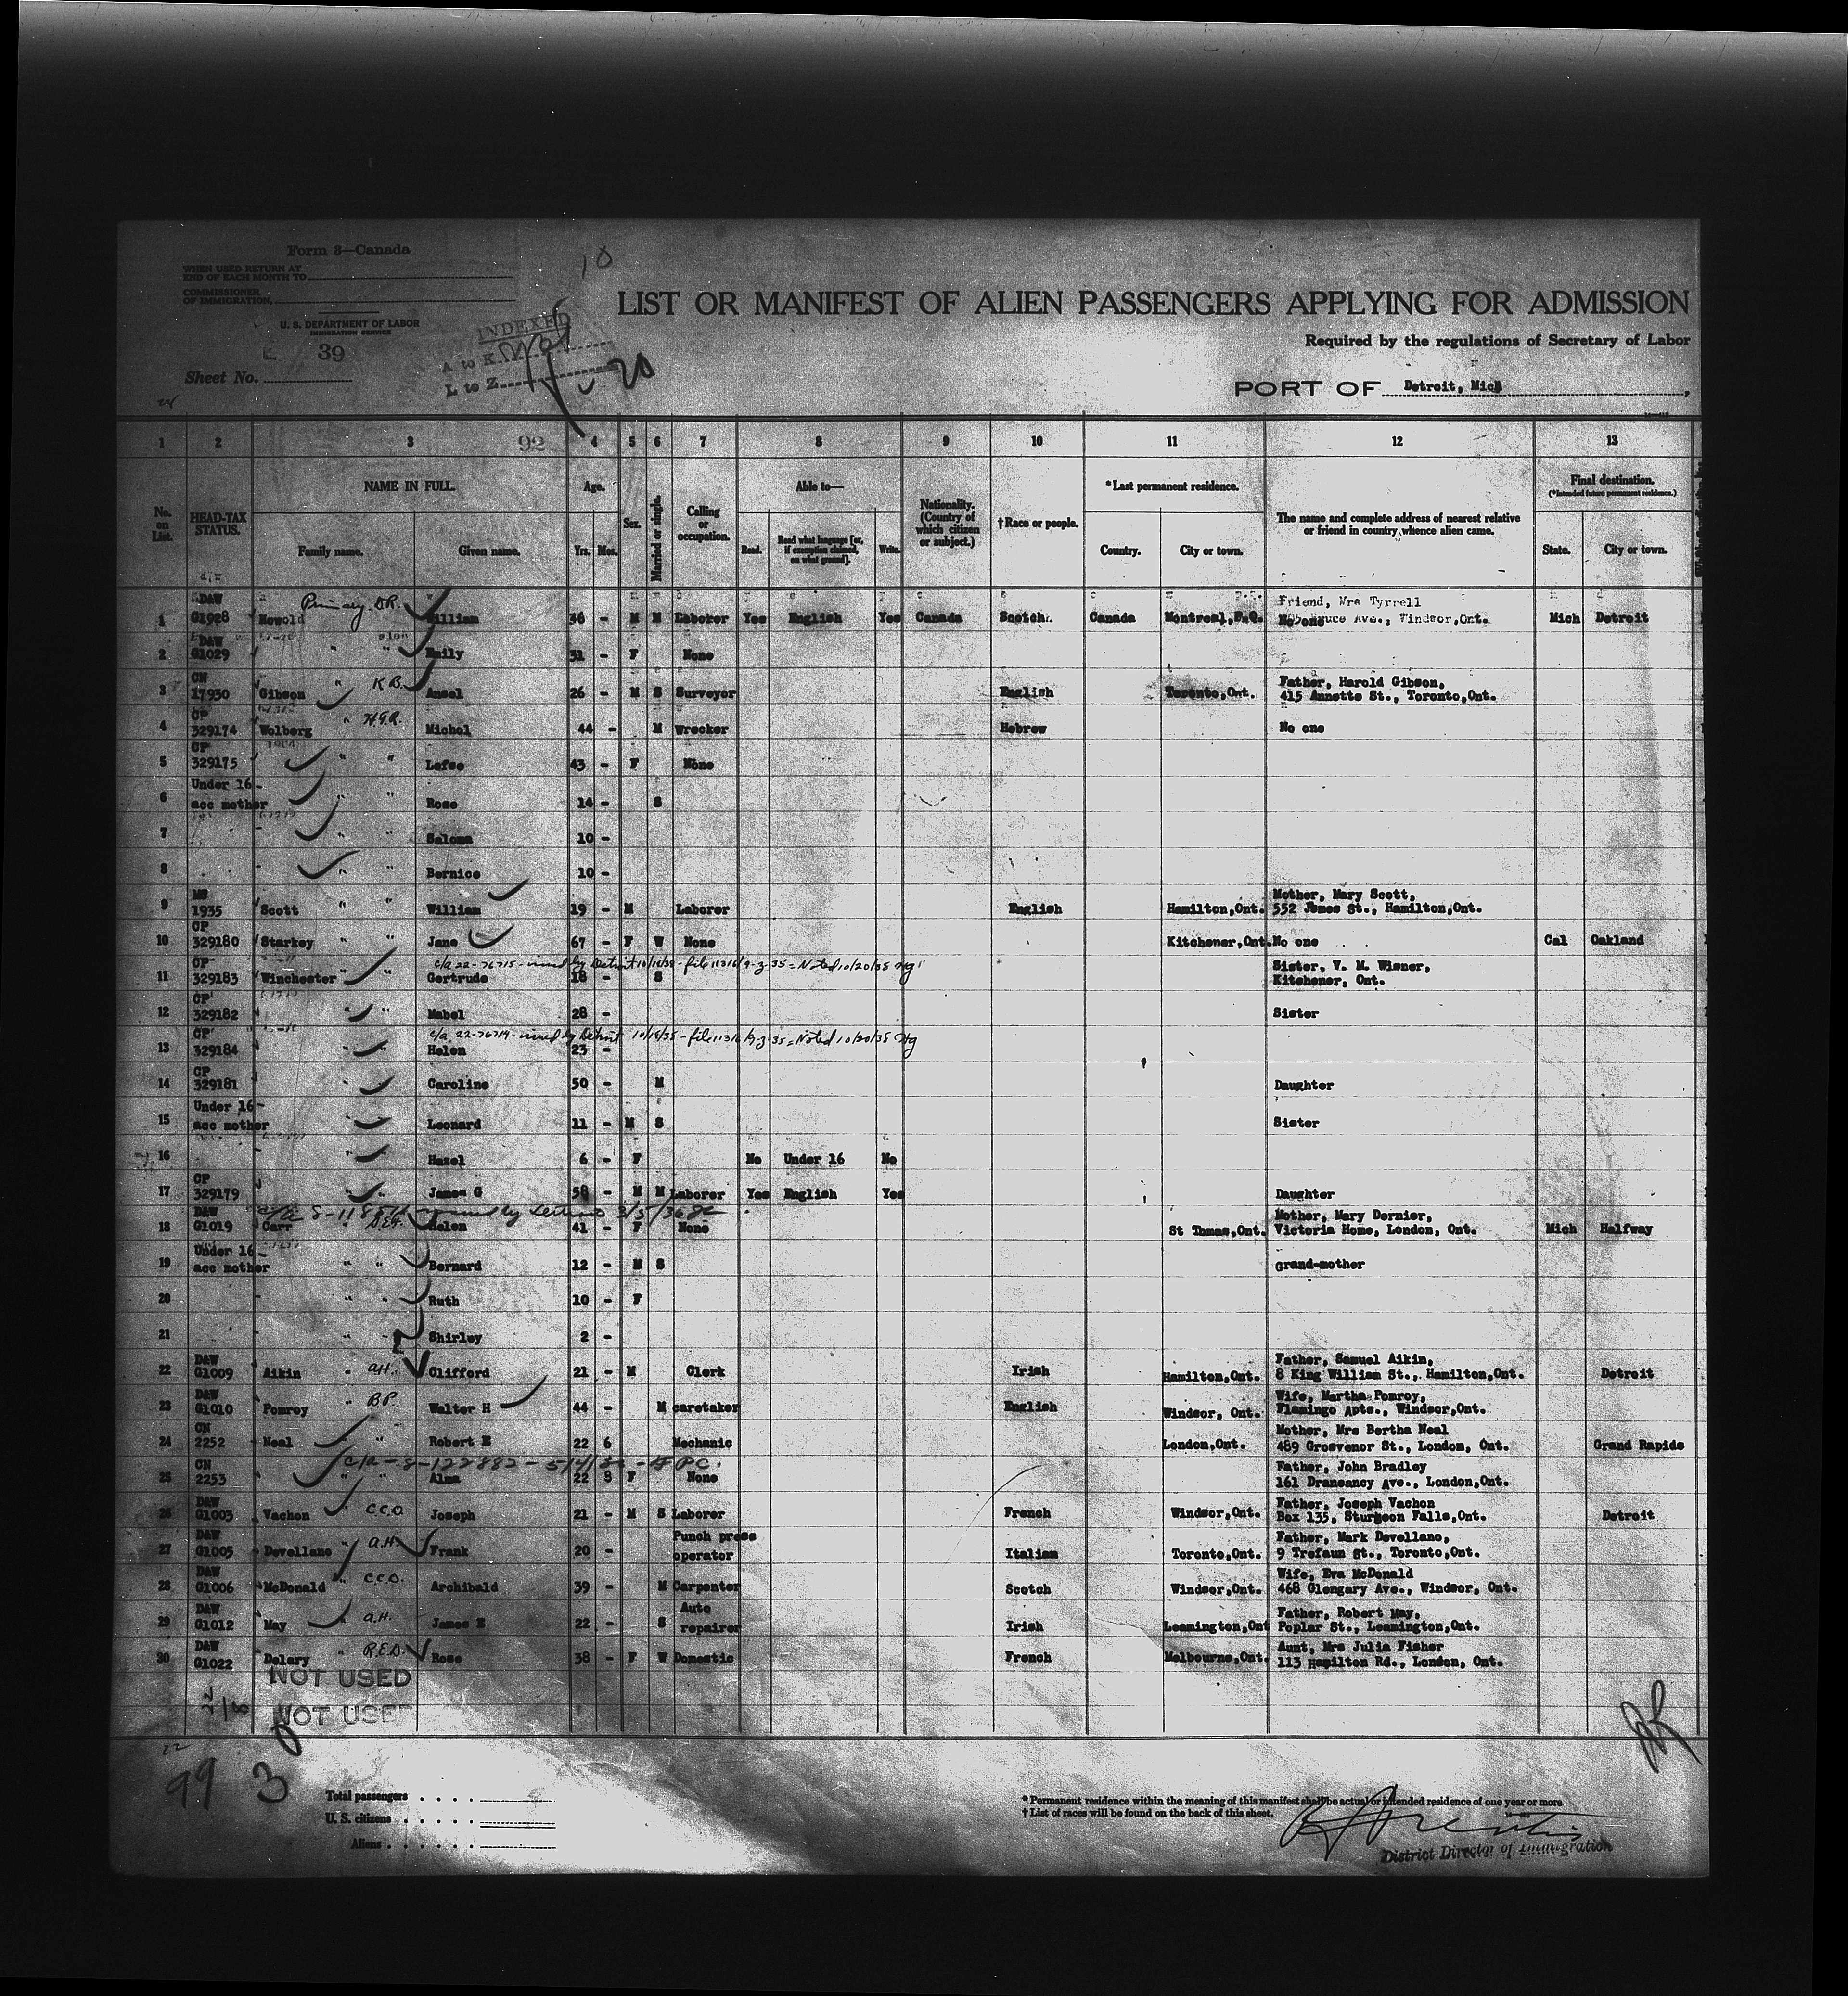 Form 3—Canada
WHEN USED RETURN AT
END OF EACH MONTH TO
COMMISSIONER
OF IMMIGRATION,
U. S. DEPARTMENT OF LABOR
IMMIGRATION SERVICE
39
Sheet No.
10
INDEXED
A to K
L to Z
20
LIST OR MANIFEST OF ALIEN PASSENGERS APPLYING FOR ADMISSION
Required by the regulations of Secretary of Labor
PORT OF Detroit, Mich
1 2 3 92 4 5 6 7 8 9 10 11 12 13
No. on List.
HEAD-TAX STATUS.
NAME IN FULL.
Family name. Given name.
Age.
Yrs. Mos.
Sex.
Married or single.
Calling or occupation.
Able to—
Read. Read what language [or, if exemption claimed, on what ground]. Write.
Nationality. (Country of which citizen or subject.)
†Race or people.
*Last permanent residence.
Country. City or town.
The name and complete address of nearest relative or friend in country whence alien came.
Final destination.
(*Intended future permanent residence.)
State. City or town.
Primary D.R.
D&W Friend, Mrs Tyrrell
1 G1928 William 36 - M M Yes English Yes Canada Scotch Canada Montreal, P.Q. Ave., Windsor,Ont. Mich Detroit
D&W
2 G1029 " " Emily 31 - F None
CN K.B. Father, Harold Gibson,
3 17930 Gibson " Ansel 26 - M S Surveyor English Toronto,Ont. 415 Annette St., Toronto,Ont.
CP H.G.R.
4 329174 Wolberg " Michel 44 - M Wrecker Hebrew No one
CP
5 329175 " " Lefse 43 - F None
Under 16-
6 acc mother " " Rose 14 - S
7 " " " Saloma 10 -
8 " " " Bernice 10 -
Mother, Mary Scott,
9 1935 Scott " " William 19 - M Laborer English Hamilton,Ont. 552 James St., Hamilton,Ont.
CP
10 329180 Starkey " " Jane 67 - F W None Kitchener,Ont. No one Cal Oakland
CP c/a 22-76715 - issued by Detroit 10/18/35 - file 11316/9-3-35 = Noted 10/20/35 Sister, V. M. Wisner,
11 329183 Winchester " Gertrude 18 - S Kitchener, Ont.
CP
12 329182 " " Mabel 28 - Sister
CP c/a 22-76714 - issued by Detroit 10/18/35 - file 11316/9-3-35 = Noted 10/20/35
13 329184 " " Helen 23 -
CP
14 329181 " Caroline 50 - M Daughter
Under 16-
15 acc mother " Leonard 11 - M S Sister
16 " Hazel 6 - F No Under 16 No
CP
17 329179 " " James G 58 - M M Laborer Yes English Yes Daughter
D&W issued by Detroit Mother, Mary Dernier,
18 G1019 Carr " Helen 41 - F None St Thomas,Ont. Victoria Home, London, Ont. Mich Halfway
Under 16-
19 acc mother " " Bernard 12 - M S Grand-mother
20 " " " Ruth 10 - F
21 " " " Shirley 2 -
D&W Father, Samuel Aikin,
22 G1009 Aikin " A.H. Clifford 21 - M Clerk Irish Hamilton,Ont. 8 King William St., Hamilton,Ont. Detroit
D&W Wife, Martha Pomroy,
23 G1010 Pomroy " B.P. Walter H 44 - M caretaker English Windsor, Ont. Flamingo Apts., Windsor,Ont.
CN Mother, Mrs Bertha Neal
24 2252 Neal " Robert E 22 6 Mechanic London,Ont. 489 Grosvenor St., London, Ont. Grand Rapids
CN c/a-8-122882- Father, John Bradley
25 2253 " " Alma 22 8 F None 161 Draneancy Ave., London,Ont.
D&W C.C.O. Father, Joseph Vachon
26 G1003 Vachon Joseph 21 - M S Laborer French Windsor,Ont. Box 135, Sturgeon Falls,Ont. Detroit
D&W Punch press Father, Mark Devellano,
27 G1005 Devellano " A.H. Frank 20 - operator Italian Toronto,Ont. 9 Trefaun St., Toronto,Ont.
D&W Wife, Eva McDonald
28 G1006 McDonald " C.C.O. Archibald 39 - M Carpenter Scotch Windsor,Ont. 468 Glengary Ave., Windsor, Ont.
D&W Auto Father, Robert May,
29 G1012 May " A.H. James E 22 - S repairer Irish Leamington,Ont Poplar St., Leamington,Ont.
D&W Aunt, Mrs Julia Fisher
30 G1022 Delary " R.E.D. Rose 38 - F W Domestic French Melbourne,Ont. 113 Hamilton Rd., London, Ont.
NOT USED
NOT USED
99 3
Total passengers
U. S. citizens
Aliens
* Permanent residence within the meaning of this manifest shall be actual or intended residence of one year or more
† List of races will be found on the back of this sheet.
District Director of Immigration